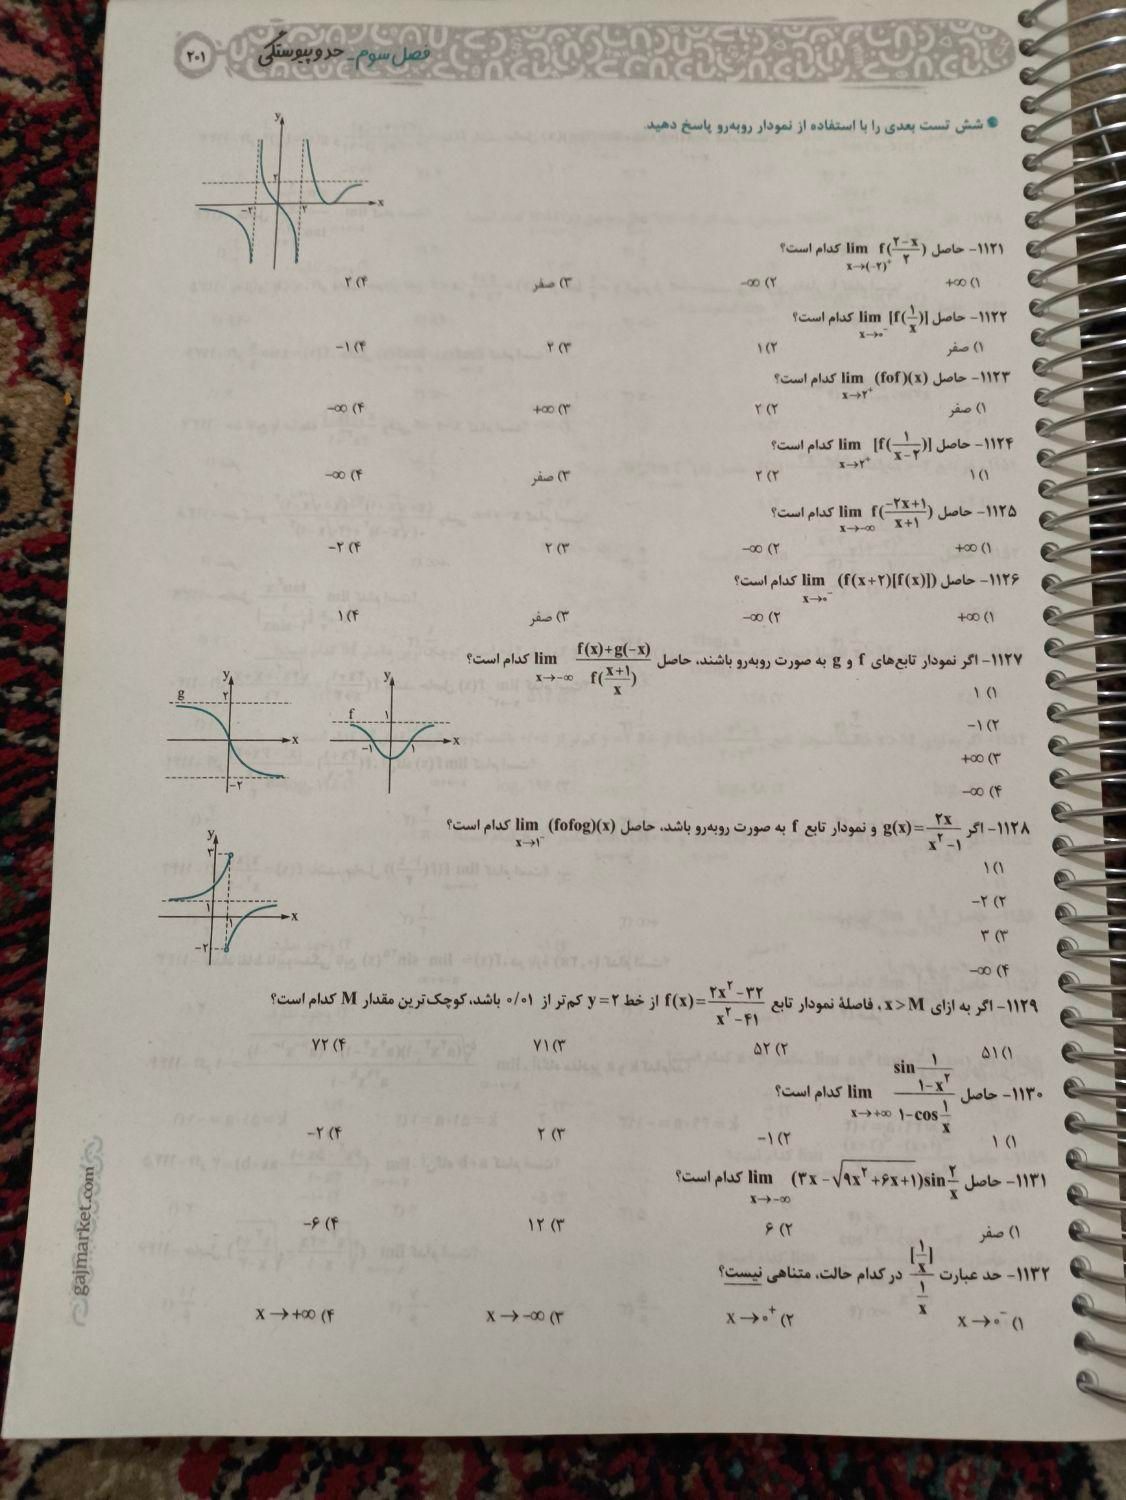 فصل سوم - حد و پیوستگی
۲۰۱
شش تست بعدی را با استفاده از نمودار روبه‌رو پاسخ دهید.
y
۲
x
-۲
۲
۱۱۲۱- حاصل lim x→(-۲)⁺ f((۲-x)/۲) کدام است؟
۱) +∞ ۲) -∞ ۳) صفر ۴) ۲
۱۱۲۲- حاصل lim x→۰⁻ [f(۱/x)] کدام است؟
۱) صفر ۲) ۱ ۳) ۲ ۴) -۱
۱۱۲۳- حاصل lim x→۲⁺ (fof)(x) کدام است؟
۱) صفر ۲) ۲ ۳) +∞ ۴) -∞
۱۱۲۴- حاصل lim x→۲⁺ [f(۱/(x-۲))] کدام است؟
۱) ۱ ۲) ۲ ۳) صفر ۴) -∞
۱۱۲۵- حاصل lim x→-∞ f((-۲x+۱)/(x+۱)) کدام است؟
۱) +∞ ۲) -∞ ۳) ۲ ۴) -۲
۱۱۲۶- حاصل lim x→۰⁻ (f(x+۲)[f(x)]) کدام است؟
۱) +∞ ۲) -∞ ۳) صفر ۴) ۱
۱۱۲۷- اگر نمودار تابع‌های f و g به صورت روبه‌رو باشند، حاصل lim x→-∞ (f(x)+g(-x))/f((x+۱)/x) کدام است؟
۱) ۱
۲) -۱
۳) +∞
۴) -∞
y
g
۲
x
-۲
y
f
۱
x
-۱
۱
۱۱۲۸- اگر g(x)=۲x/(x²-۱) و نمودار تابع f به صورت روبه‌رو باشد، حاصل lim x→۱⁻ (fofog)(x) کدام است؟
۱) ۱
۲) -۲
۳) ۳
۴) -∞
y
۳
۱
۱
x
-۲
۱۱۲۹- اگر به ازای x>M، فاصلهٔ نمودار تابع f(x)=(۲x²-۳۲)/(x²-۴۱) از خط y=۲ کم‌تر از ۰/۰۱ باشد، کوچک‌ترین مقدار M کدام است؟
۱) ۵۱ ۲) ۵۲ ۳) ۷۱ ۴) ۷۲
۱۱۳۰- حاصل lim x→+∞ (sin ۱/(۱-x²))/(۱-cos ۱/x) کدام است؟
۱) ۱ ۲) -۱ ۳) ۲ ۴) -۲
۱۱۳۱- حاصل lim x→-∞ (۳x-√(۹x²+۶x+۱))sin ۲/x کدام است؟
۱) صفر ۲) ۶ ۳) ۱۲ ۴) -۶
۱۱۳۲- حد عبارت [۱/x]/(۱/x) در کدام حالت، متناهی نیست؟
۱) x→۰⁻ ۲) x→۰⁺ ۳) x→-∞ ۴) x→+∞
gajmarket.com